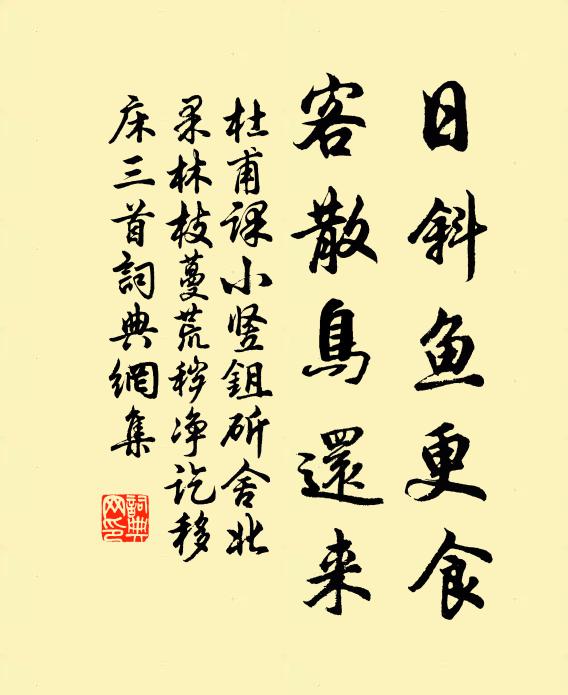 日斜鱼更食
客散鳥還来
杜甫課小竖鉏斫舍北
果林枝蔓荒秽净讫移
床三首詞典網集
詞典
网印